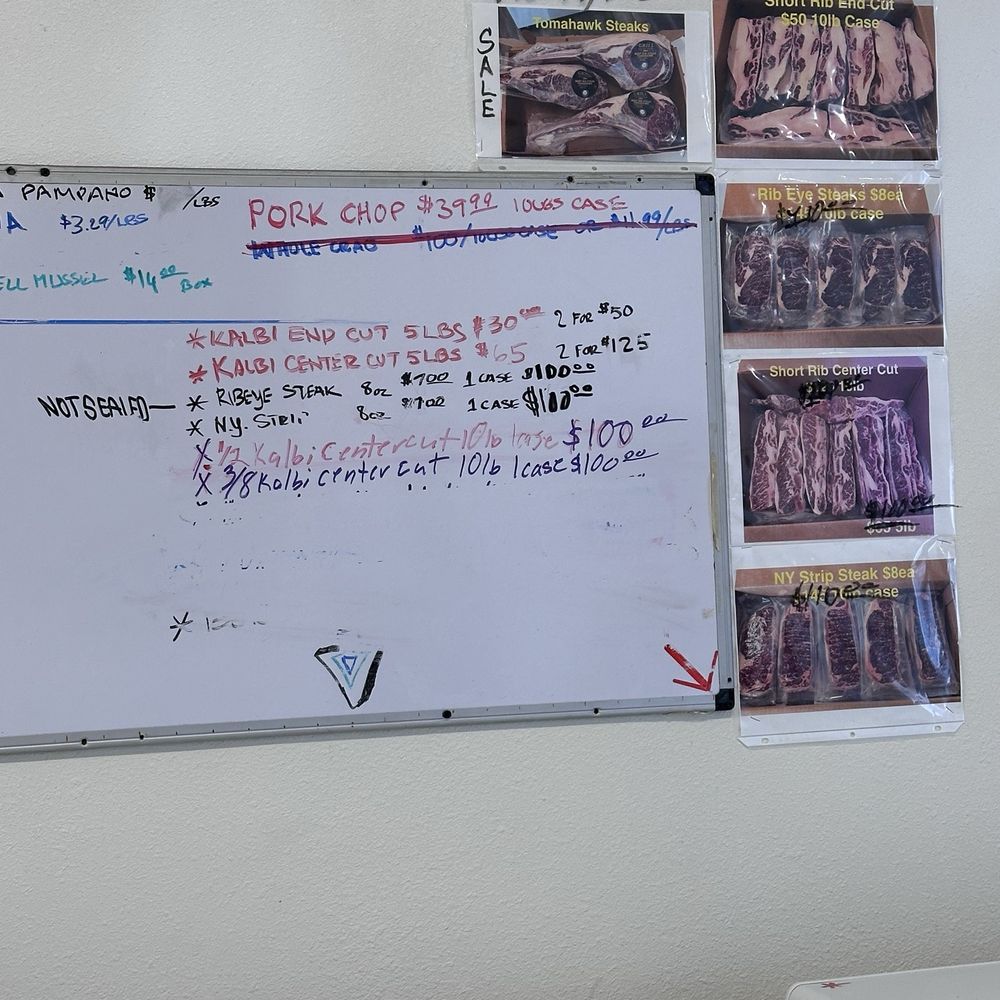 SALE
Tomahawk Steaks
Short Rib End-Cut
$50 10lb Case
PAMPANO $ /LBS
$3.29/LBS
MUSSEL $14.00 BOX
PORK CHOP $39.99 10LBS CASE
WHOLE CRAB $100/10LBS CASE OR $11.99/LBS
* KALBI END CUT 5LBS $30.00 2 FOR $50
* KALBI CENTER CUT 5LBS $65 2 FOR $125
NOT SEALED —
* RIBEYE STEAK 8oz $7.00 1 CASE $100.00
* N.Y. STRIP 8oz $7.00 1 CASE $100.00
X 1/2 Kalbi Center cut 10lb 1case $100.00
X 3/8 Kalbi center cut 10lb 1case $100.00
Rib Eye Steaks $8ea
10lb case
Short Rib Center Cut
$55 5lb
NY Strip Steak $8ea
$110.00
case